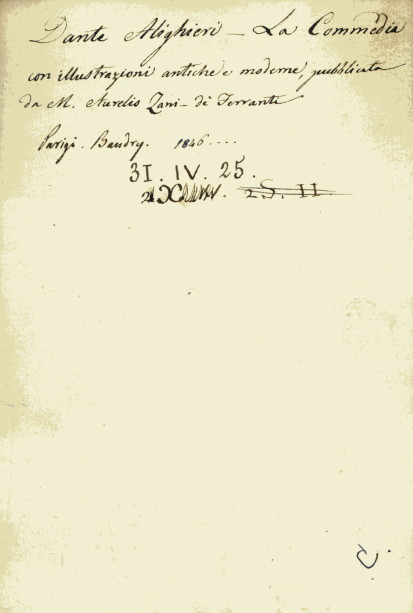 Dante Alighieri – La Commedia
con illustrazioni antiche e moderne, pubblicata
da M. Aurelio Zani – di Ferranti
Parigi. Baudry. 1846....
31. IV. 25.
2.S. II.